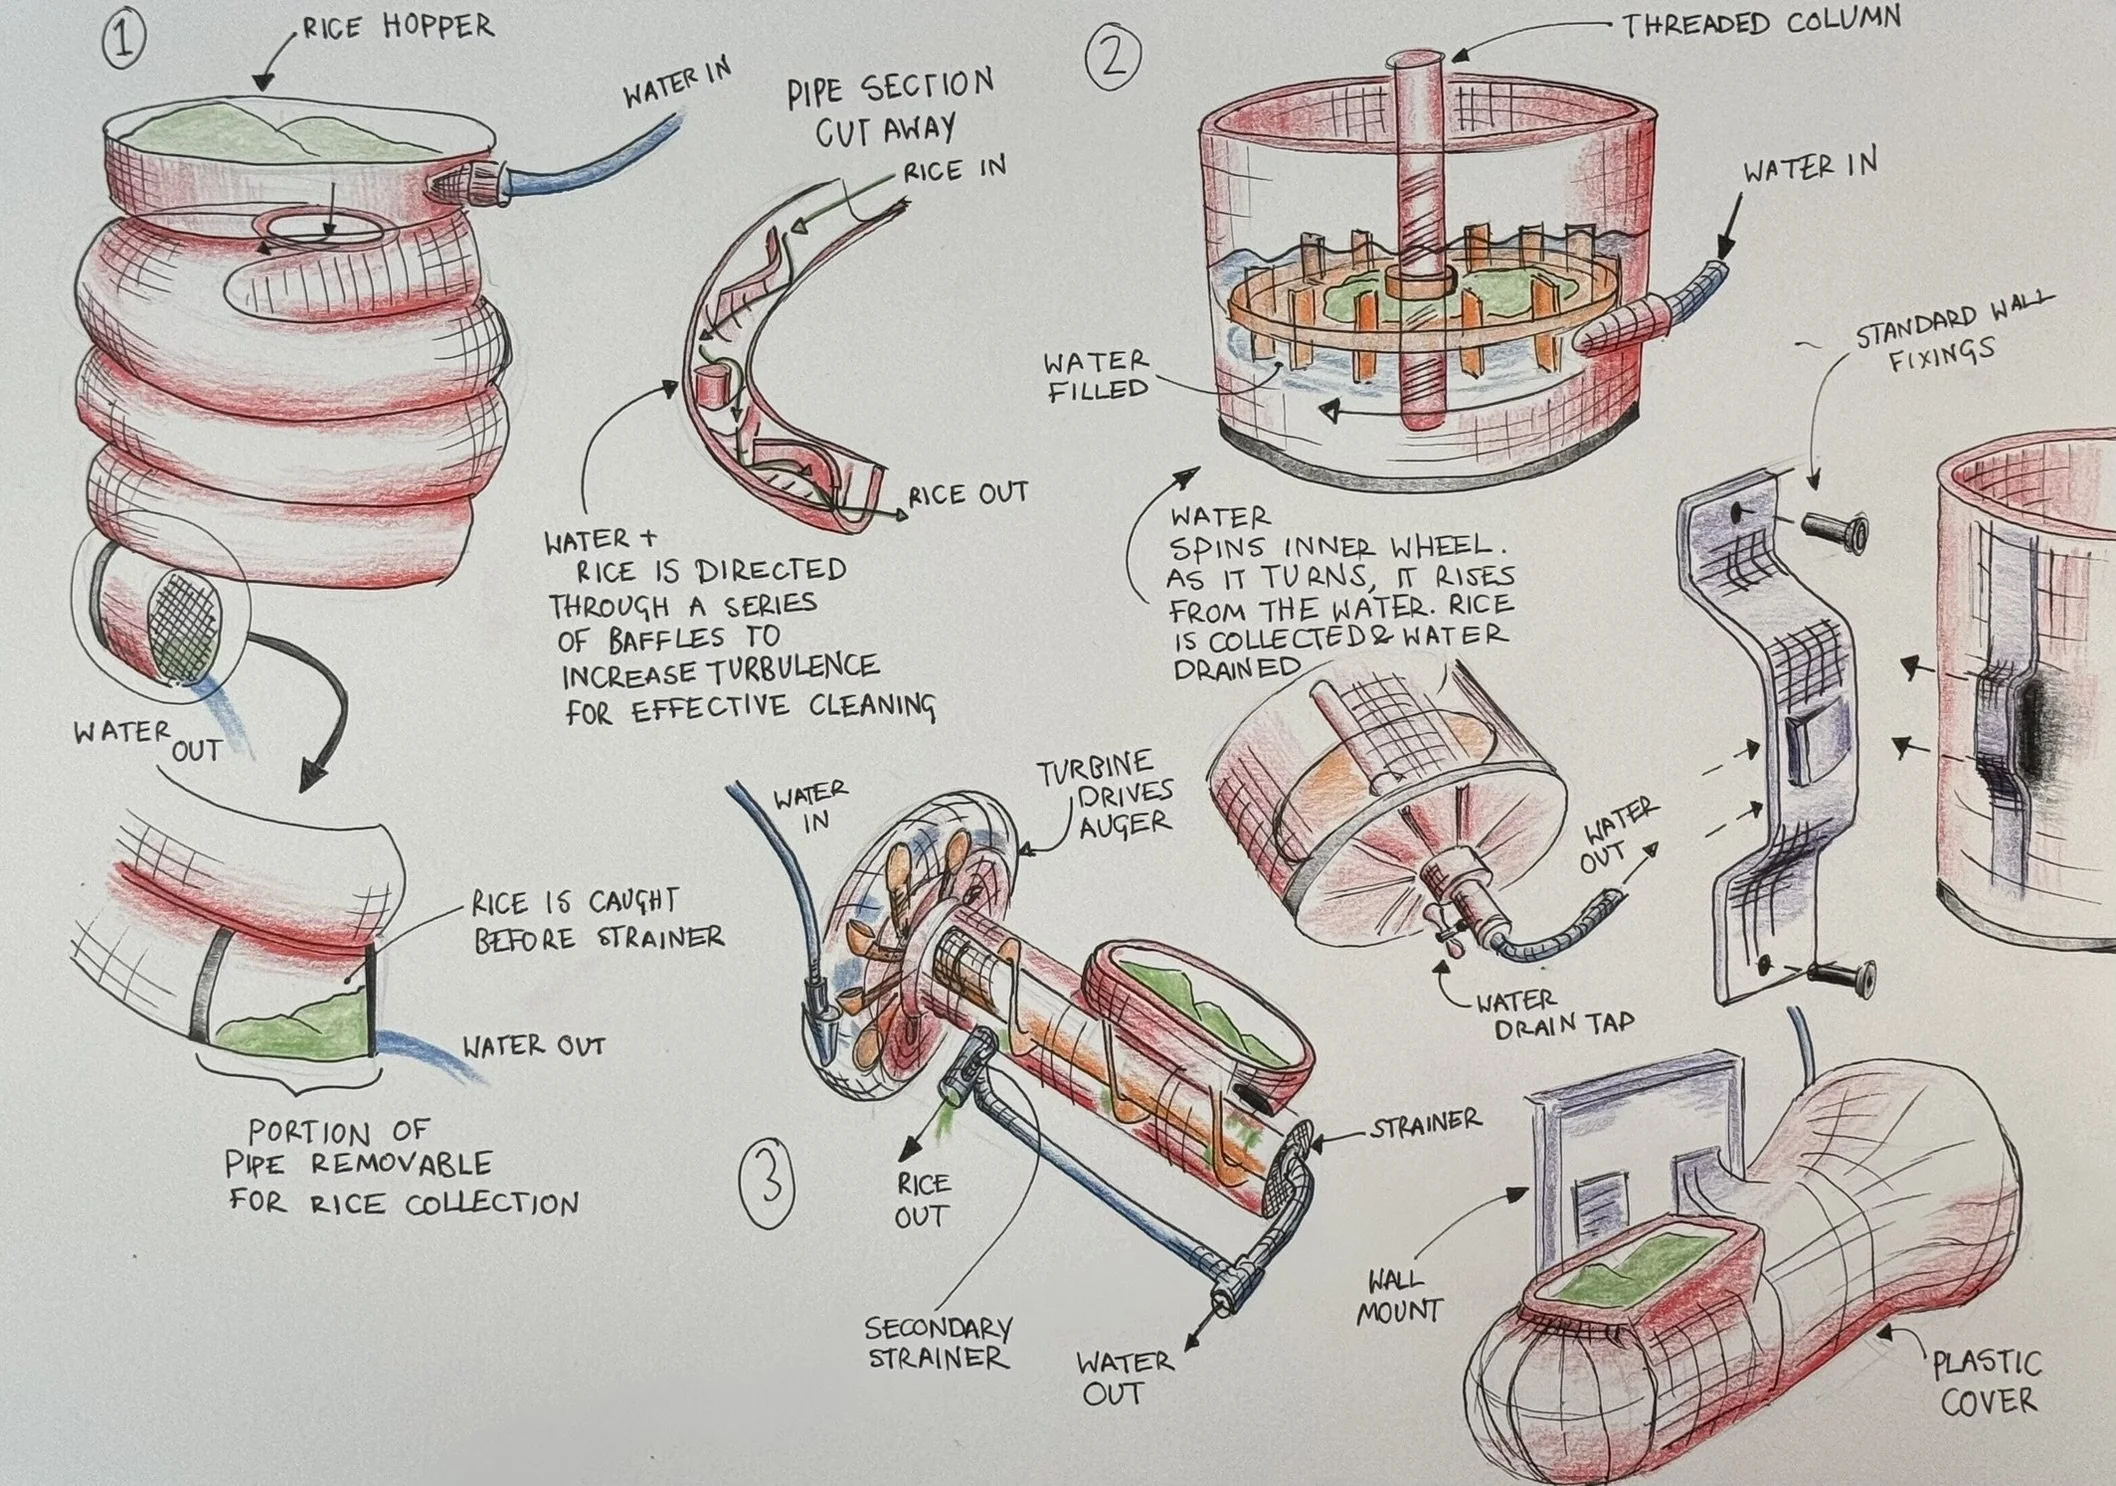 1
RICE HOPPER
WATER IN
PIPE SECTION
CUT AWAY
RICE IN
RICE OUT
WATER +
RICE IS DIRECTED
THROUGH A SERIES
OF BAFFLES TO
INCREASE TURBULENCE
FOR EFFECTIVE CLEANING
WATER
OUT
RICE IS CAUGHT
BEFORE STRAINER
WATER OUT
PORTION OF
PIPE REMOVABLE
FOR RICE COLLECTION
2
THREADED COLUMN
WATER IN
WATER
FILLED
WATER
SPINS INNER WHEEL.
AS IT TURNS, IT RISES
FROM THE WATER. RICE
IS COLLECTED & WATER
DRAINED
STANDARD WALL
FIXINGS
WATER
OUT
WATER
DRAIN TAP
3
WATER
IN
TURBINE
DRIVES
AUGER
RICE
OUT
STRAINER
SECONDARY
STRAINER
WATER
OUT
WALL
MOUNT
PLASTIC
COVER